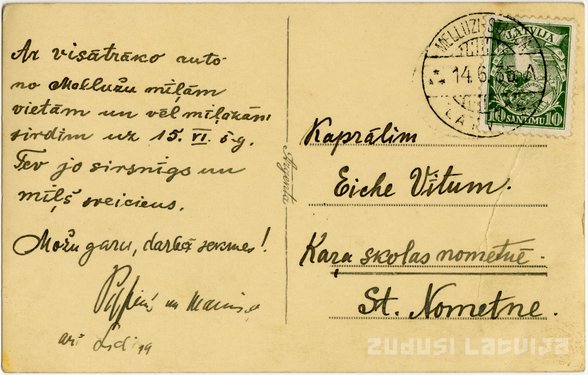 Ar visātrāko auto
no Mellužu mīļām
vietām un vēl mīļākām
sirdīm uz 15. VI. š.g.
Tev jo sirsnīgs un
mīļš sveiciens.
Možu garu, darbā sekmes!
un
arī
Argenta
MELLUŽI
14.6.36. A
LATVIJA
10 SANTIMU 10
Kaprālim
Eiche Vītum.
Kaŗa skolas nometnē.
St. Nometne.
zudusi Latvija